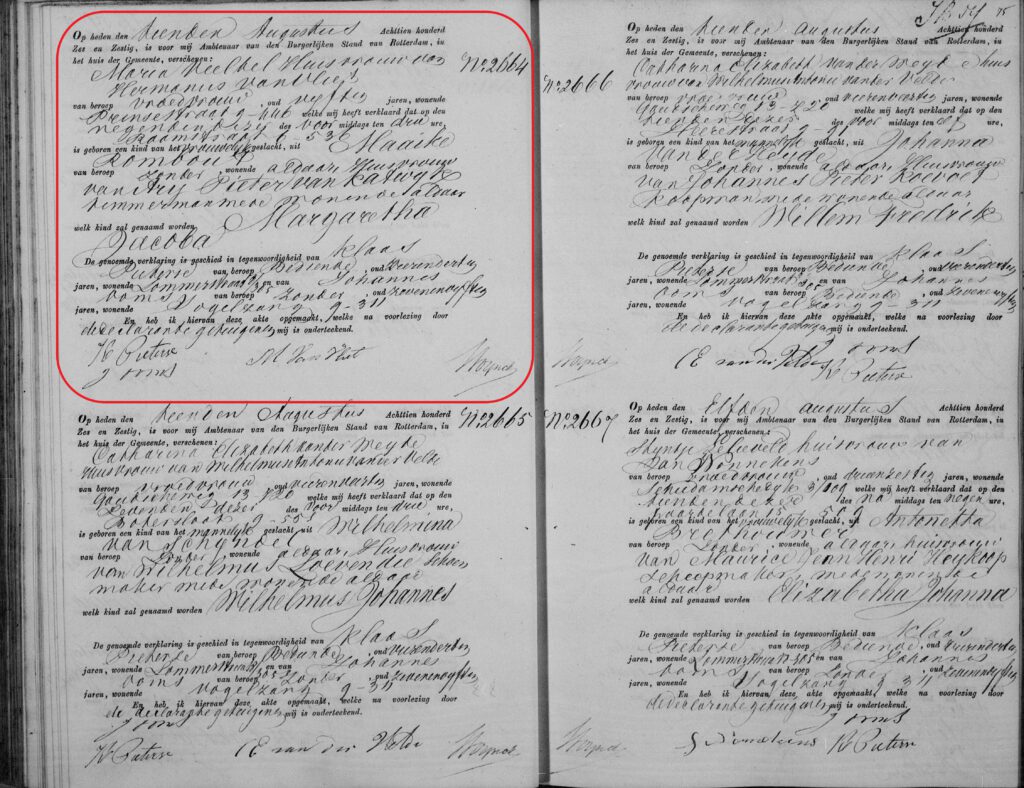 Op heden den tienden Augustus Achttien honderd
Zes en Zestig, is voor mij Ambtenaar van den Burgerlijken Stand van Rotterdam, in
het huis der Gemeente, verschenen:
Maria Huisvrouw van
Hermanus van Vliet
van beroep vroedvrouw, oud vijftig jaren, wonende
Prinsestraat welke mij verklaard heeft dat op den
negenden dezer des voor middags ten drie ure,
is geboren een kind van het vrouwelijk geslacht, uit Maaike
Rombout
van beroep zonder, wonende aldaar Huisvrouw
van Arij Pieter van Katwijk
timmerman mede wonende aldaar
welk kind zal genaamd worden Margaretha
Jacoba
De genoemde verklaring is geschied in tegenwoordigheid van Klaas
Pieterse van beroep Bediende, oud
jaren, wonende Lommerstraat en van Johannes
Ooms van beroep zonder, oud zevenenvijftig
jaren, wonende Vogelzang 9-311
En heb ik hiervan deze akte opgemaakt, welke na voorlezing door
de declarante getuigen mij is onderteekend.
K Pieterse M. Van Vliet
J Ooms
No 2664
Op heden den tienden Augustus Achttien honderd
Zes en Zestig, is voor mij Ambtenaar van den Burgerlijken Stand van Rotterdam, in
het huis der Gemeente, verschenen:
Catharina Elizabeth van der Weyde
Huisvrouw van Wilhelmus Antonie van der Velde
van beroep vroedvrouw, oud jaren, wonende
13 720 welke mij heeft verklaard dat op den
dezer des voor middags ten drie ure,
Botersloot 9-55
is geboren een kind van het mannelijk geslacht uit Wilhelmina
van
van beroep zonder, wonende aldaar, Huisvrouw
van Wilhelmus Loevendie schoen
maker mede wonende aldaar
welk kind zal genaamd worden Wilhelmus Johannes
De genoemde verklaring is geschied in tegenwoordigheid van Klaas
Pieterse van beroep Bediende, oud
jaren, wonende Lommerstraat en van Johannes
Ooms van beroep zonder, oud zevenenvijftig
jaren, wonende Vogelzang 9-311
En heb ik hiervan deze akte opgemaakt, welke na voorlezing door
de declarante getuigen mij is onderteekend.
J Ooms
K Pieterse C E van der Velde
No 2665
75
Op heden den tienden Augustus Achttien honderd
Zes en Zestig, is voor mij Ambtenaar van den Burgerlijken Stand van Rotterdam, in
het huis der Gemeente, verschenen:
Catharina Elizabeth van der Weyde huis
vrouw van Wilhelmus Antonie van der Velde
van beroep vroedvrouw, oud jaren, wonende
13 720 welke mij heeft verklaard dat op den
tienden dezer des voor middags ten elf ure,
Heerestraat 9-91
is geboren een kind van het mannelijk geslacht, uit Johanna
van der
van beroep zonder, wonende aldaar, Huisvrouw
van Johannes Pieter
Koopman mede wonende aldaar
welk kind zal genaamd worden Willem Fredrik
De genoemde verklaring is geschied in tegenwoordigheid van Klaas
Pieterse van beroep Bediende, oud
jaren, wonende Lommerstraat en van Johannes
Ooms van beroep Bediende, oud zevenenvijftig
jaren, wonende Vogelzang 9-311
En heb ik hiervan deze akte opgemaakt, welke na voorlezing door
de declarante getuigen mij is onderteekend.
J Ooms
C E van der Velde
K Pieterse
No 2666
Op heden den Elfden Augustus Achttien honderd
Zes en Zestig, is voor mij Ambtenaar van den Burgerlijken Stand van Rotterdam, in
het huis der Gemeente, verschenen:
huisvrouw van
Jan
van beroep Vroedvrouw, oud jaren, wonende
welke mij heeft verklaard dat op den
tienden dezer des na middags ten negen ure,
is geboren een kind van het vrouwelijk geslacht, uit Antonetta
van beroep zonder, wonende aldaar huisvrouw
van Maurice Jean Henri Heykoop
Scheepmaker mede wonende
aldaar
welk kind zal genaamd worden Elizabetha Johanna
De genoemde verklaring is geschied in tegenwoordigheid van Klaas
Pieterse van beroep Bediende, oud
jaren, wonende Lommerstraat en van Johannes
Ooms van beroep zonder, oud zevenenvijftig
jaren, wonende Vogelzang 9-311
En heb ik hiervan deze akte opgemaakt, welke na voorlezing door
de declarante getuigen mij is onderteekend.
J Ooms
K Pieterse
No 2667